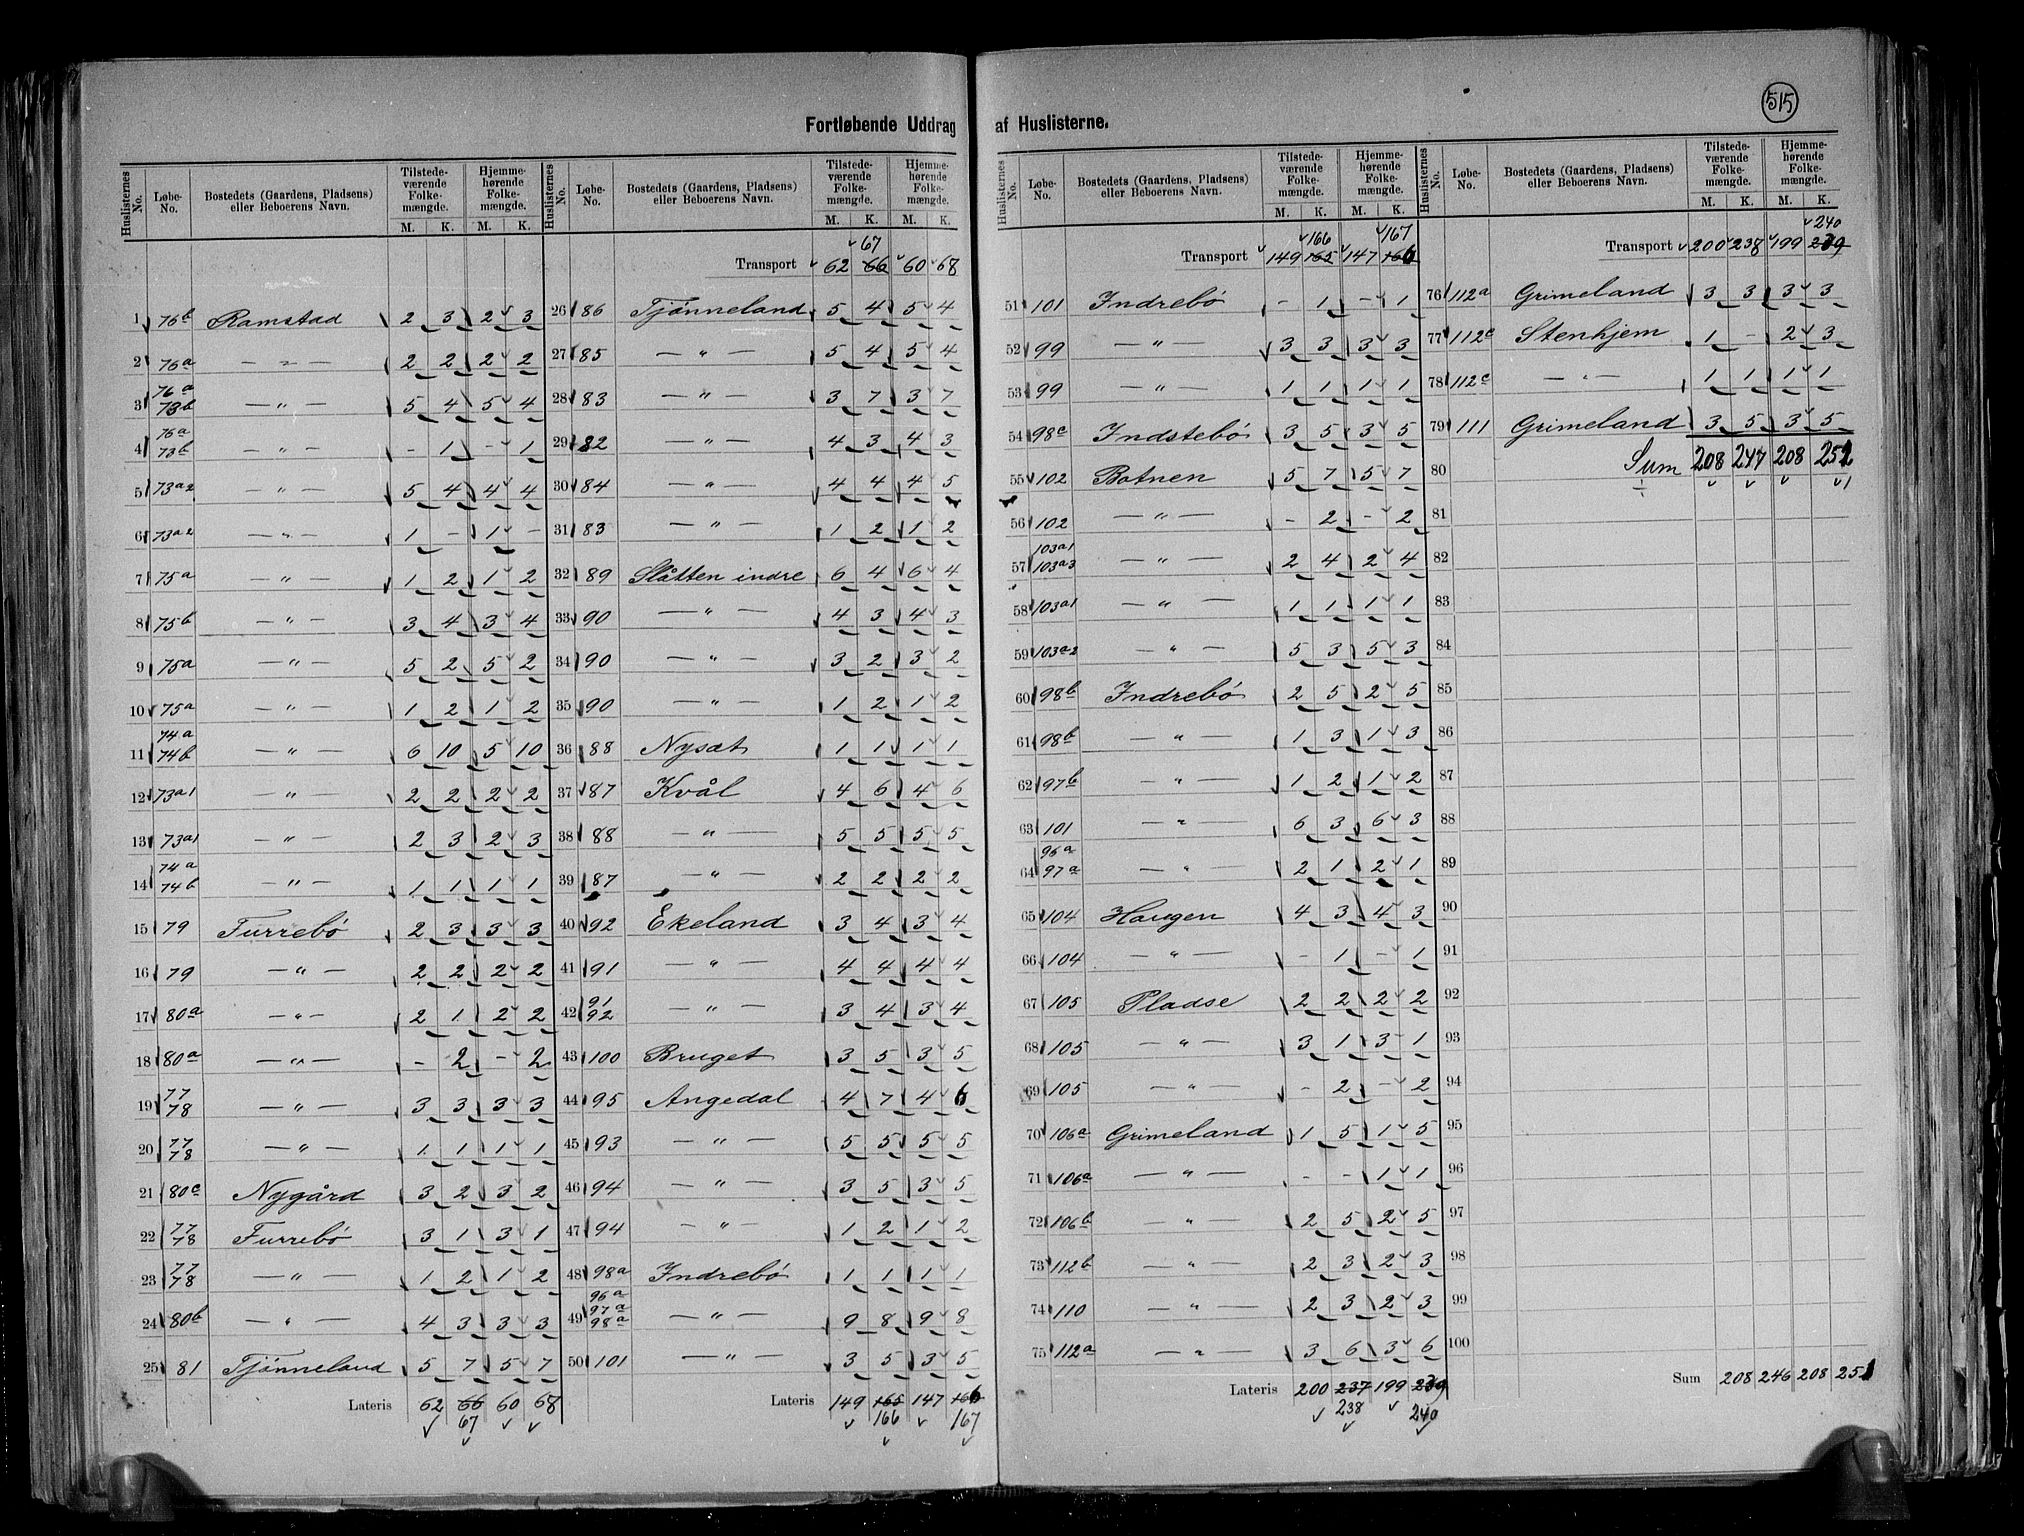 515
Fortløbende Uddrag af Huslisterne.
Huslisternes No. | Løbe-No. | Bostedets (Gaardens, Pladsens) eller Beboerens Navn. | Tilstedeværende Folkemængde. M. K. | Hjemmehørende Folkemængde. M. K.
1 76b Ramstad 2 3 2 3
2 76a — " — 2 2 2 2
3 76a 73b — " — 5 4 5 4
4 76a 73b — " — - 1 - 1
5 73a2 — " — 5 4 4 4
6 73a2 — " — 1 - 1 -
7 75a — " — 1 2 1 2
8 75b — " — 3 4 3 4
9 75a — " — 5 2 5 2
10 75a — " — 1 2 1 2
11 74a 74b — " — 6 10 5 10
12 73a1 — " — 2 2 2 2
13 73a1 — " — 2 3 2 3
14 74a 74b — " — 1 1 1 1
15 79 Furrebø 2 3 3 3
16 79 — " — 2 2 2 2
17 80a — " — 2 1 2 2
18 80a — " — - 2 - 2
19 77 78 — " — 3 3 3 3
20 77 78 — " — 1 1 1 1
21 80c Nygård 3 2 3 2
22 77 78 Furrebø 3 1 3 1
23 77 78 — " — 1 2 1 2
24 80b — " — 4 3 3 3
25 81 Tjønneland 5 7 5 7
Lateris 62 66 60 68
67
Huslisternes No. | Løbe-No. | Bostedets (Gaardens, Pladsens) eller Beboerens Navn. | Tilstedeværende Folkemængde. M. K. | Hjemmehørende Folkemængde. M. K.
67
Transport 62 66 60 68
26 86 Tjønneland 5 4 5 4
27 85 — " — 5 4 5 4
28 83 — " — 3 7 3 7
29 82 — " — 4 3 4 3
30 84 — " — 4 4 4 5
31 83 — " — 1 2 1 2
32 89 Slåtten indre 6 4 6 4
33 90 — " — 4 3 4 3
34 90 — " — 3 2 3 2
35 90 — " — 1 2 1 2
36 88 Nysæt 1 1 1 1
37 87 Kvål 4 6 4 6
38 88 — " — 5 5 5 5
39 87 — " — 2 2 2 2
40 92 Ekeland 3 4 3 4
41 91 — " — 4 4 4 4
42 91 92 — " — 3 4 3 4
43 100 Bruget 3 5 3 5
44 95 Angedal 4 7 4 6
45 93 — " — 5 5 5 5
46 94 — " — 3 5 3 5
47 94 — " — 1 2 1 2
48 98a Indrebø 1 1 1 1
49 96a 97a 98a — " — 9 8 9 8
50 101 — " — 3 5 3 5
Lateris 149 165 147 166
166 167
Huslisternes No. | Løbe-No. | Bostedets (Gaardens, Pladsens) eller Beboerens Navn. | Tilstedeværende Folkemængde. M. K. | Hjemmehørende Folkemængde. M. K.
166 167
Transport 149 165 147 166
51 101 Indrebø - 1 - 1
52 99 — " — 3 3 3 3
53 99 — " — 1 1 1 1
54 98c Indstebø 3 5 3 5
55 102 Botnen 5 7 5 7
56 102 — " — - 2 - 2
57 103a1 103a3 — " — 2 4 2 4
58 103a1 — " — 1 1 1 1
59 103a2 — " — 5 3 5 3
60 98b Indrebø 2 5 2 5
61 98b — " — 1 3 1 3
62 97b — " — 1 2 1 2
63 101 — " — 6 3 6 3
64 96a 97a — " — 2 1 2 1
65 104 Haugen 4 3 4 3
66 104 — " — - 1 - 1
67 105 Pladse 2 2 2 2
68 105 — " — 3 1 3 1
69 105 — " — - 2 - 2
70 106a Grimeland 1 5 1 5
71 106a — " — - - 1 1
72 106b — " — 2 5 2 5
73 112b — " — 2 3 2 3
74 110 — " — 2 3 2 3
75 112a — " — 3 6 3 6
Lateris 200 237 199 239
238 240
Huslisternes No. | Løbe-No. | Bostedets (Gaardens, Pladsens) eller Beboerens Navn. | Tilstedeværende Folkemængde. M. K. | Hjemmehørende Folkemængde. M. K.
240
Transport 200 238 199 239
76 112a Grimeland 3 3 3 3
77 112c Stenhjem 1 - 2 3
78 112c — " — 1 1 1 1
79 111 Grimeland 3 5 3 5
80 Sum 208 247 208 252
81
82
83
84
85
86
87
88
89
90
91
92
93
94
95
96
97
98
99
100
Sum 208 246 208 251